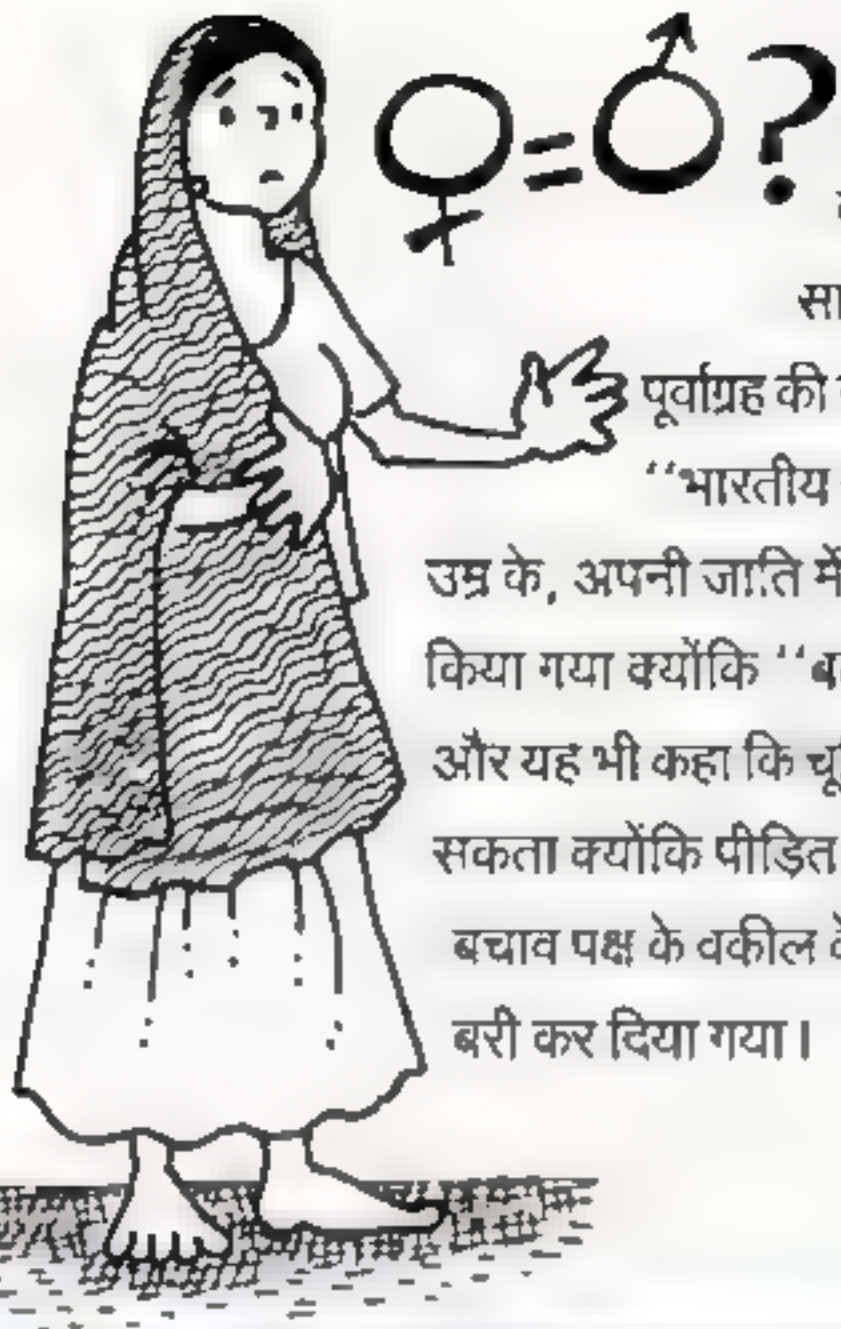 ♀=♂?
सा
पूर्वाग्रह की
‘‘भारतीय
उम्र के, अपनी जाति में
किया गया क्योंकि ‘‘ब
और यह भी कहा कि चूँ
सकता क्योंकि पीड़ित
बचाव पक्ष के वकील के
बरी कर दिया गया।